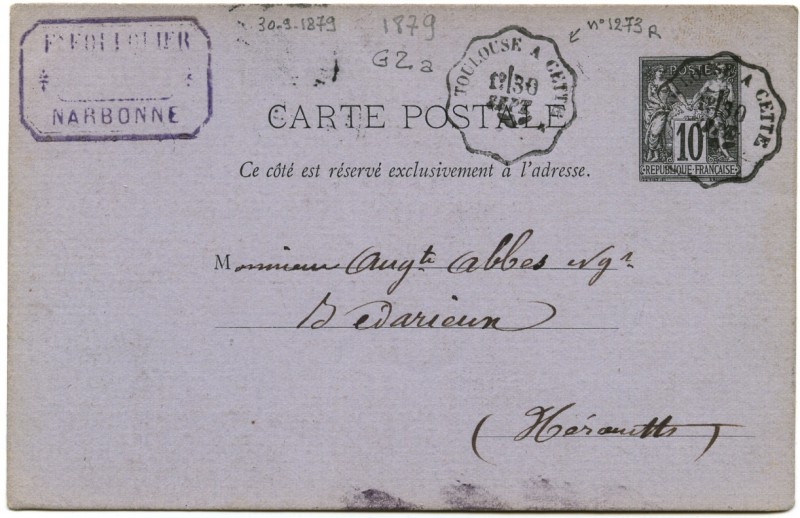 30-9-1879
1879
n° 1273 R
G2a
NARBONNE
TOULOUSE A CETTE
30
SEPT
A CETTE
30
POSTES
10
REPUBLIQUE FRANÇAISE
CARTE POSTALE
Ce côté est réservé exclusivement à l'adresse.
Monsieur Augte Abbes Ngt
Bedarieux
(Hérault)